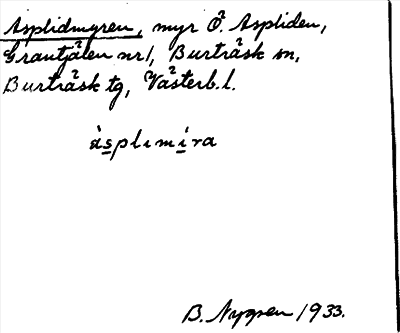 Asplidmyren, myr Ö. Aspliden,
Grantjälen nr 1, Burträsk sn,
Burträsk tg, Västerb. l.
àsplɩmɩ̀ra
B. Nygren 1933.